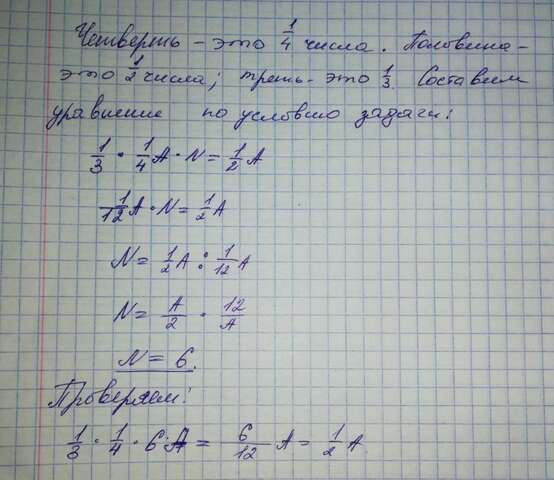 Четверть - это 1/4 числа. Половина -
это 1/2 числа; треть - это 1/3. Составим
уравнение по условию задачи:
1/3 · 1/4 A · N = 1/2 A
1/12 A · N = 1/2 A
N = 1/2 A : 1/12 A
N = A/2 · 12/A
N = 6.
Проверяем:
1/3 · 1/4 · 6 · A = 6/12 A = 1/2 A.